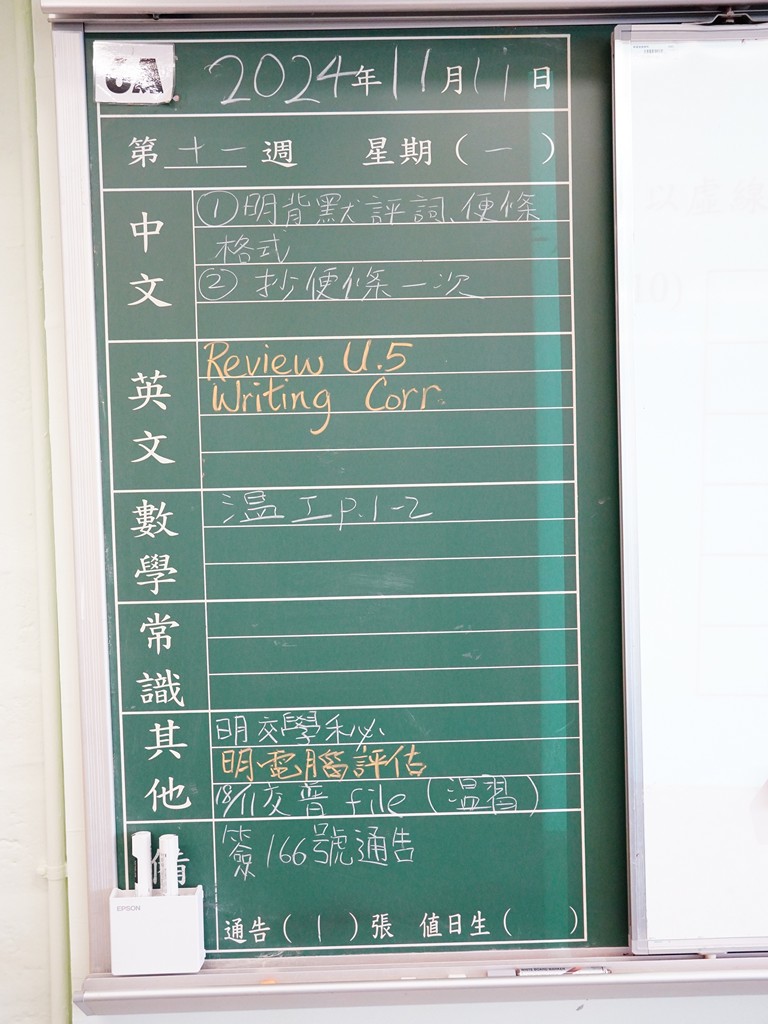 6A
2024年11月11日
第十一週 星期(一)
中文
①明背默評詞、便條
格式
②抄便條一次
英文
Review U.5
Writing Corr.
數學
溫工p.1-2
常識
其他
明交學秘
明電腦評估
18/11交普file(溫習)
備
簽166號通告
通告(1)張 值日生( )
EPSON
以虛線
10)